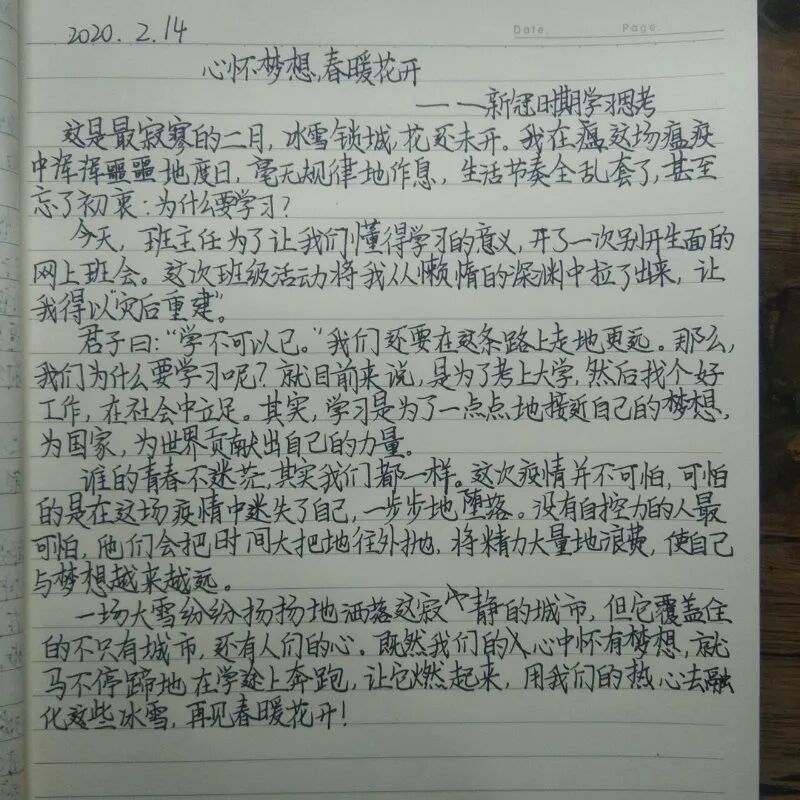 2020.2.14
Date.
Page.
心怀梦想,春暖花开
——新冠时期学习思考
这是最寂寥的二月,冰雪锁城,花还未开。我在瘟这场瘟疫
中浑浑噩噩地度日,毫无规律地作息,生活节奏全乱套了,甚至
忘了初衷:为什么要学习?
今天,班主任为了让我们懂得学习的意义,开了一次别开生面的
网上班会。这次班级活动将我从懒惰的深渊中拉了出来,让
我得以“灾后重建”。
君子曰:“学不可以已。”我们还要在这条路上走地更远。那么,
我们为什么要学习呢?就目前来说,是为了考上大学,然后找个好
工作,在社会中立足。其实,学习是为了一点点地接近自己的梦想,
为国家,为世界贡献出自己的力量。
谁的青春不迷茫,其实我们都一样。这次疫情并不可怕,可怕
的是在这场疫情中迷失了自己,一步步地堕落。没有自控力的人最
可怕,他们会把时间大把地往外抛,将精力大量地浪费,使自己
与梦想越来越远。
一场大雪纷纷扬扬地洒落这寂静的城市,但它覆盖住
的不只有城市,还有人们的心。既然我们的心中怀有梦想,就
马不停蹄地在学途上奔跑,让它燃起来,用我们的热心去融
化这些冰雪,再见春暖花开!